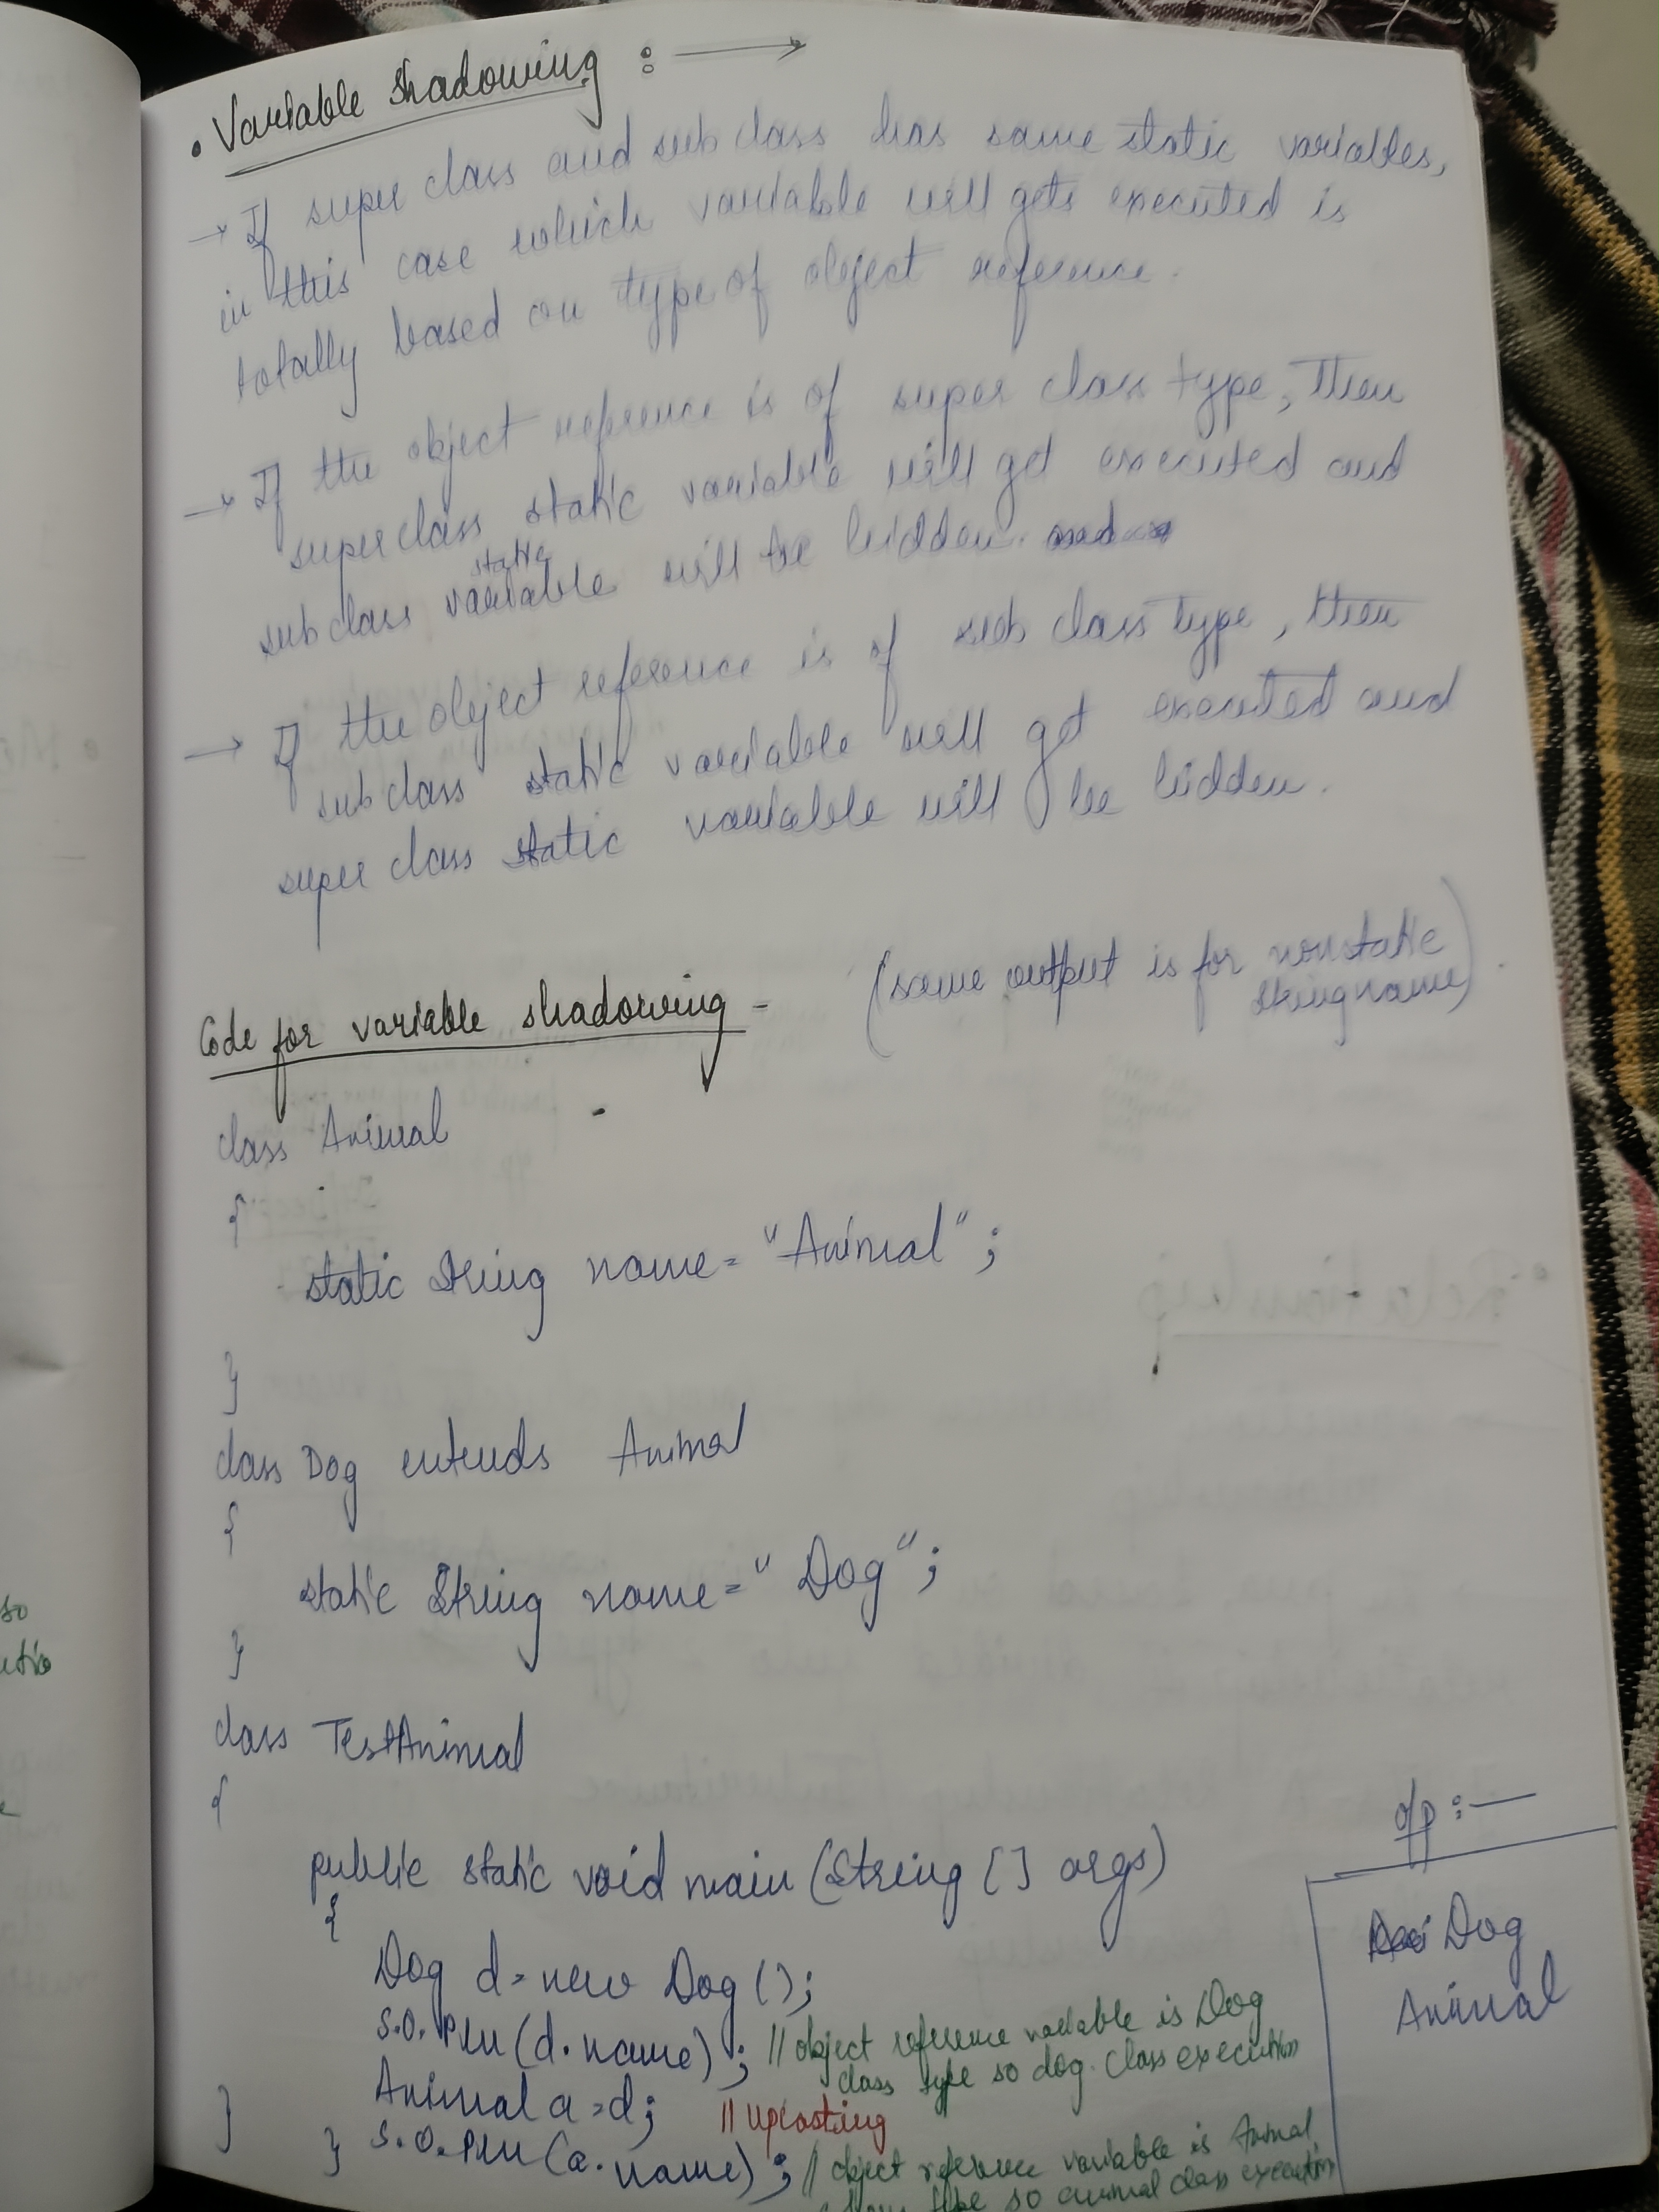 • Variable Shadowing : →
→ If super class and sub class has same static variables,
in this case which variable will gets executed is
totally based on type of object reference.
→ If the object reference is of super class type, then
super class static variable will get executed and
static
sub class variable will be hidden.
→ If the object reference is of sub class type, then
sub class static variable will get executed and
super class static variable will be hidden.
Code for variable shadowing -
(same output is for nonstatic
String name)
class Animal
{
static String name = "Animal";
}
class Dog extends Animal
{
static String name = "Dog";
}
class TestAnimal
{
public static void main (String [] args)
{
Dog d = new Dog ();
S.O.Pln (d.name); // object reference variable is Dog
class type so dog class execution
Animal a = d; // upcasting
S.O.Pln (a.name); // object reference variable is Animal
} type so animal class execution
}
o/p :—
Dog
Animal
so